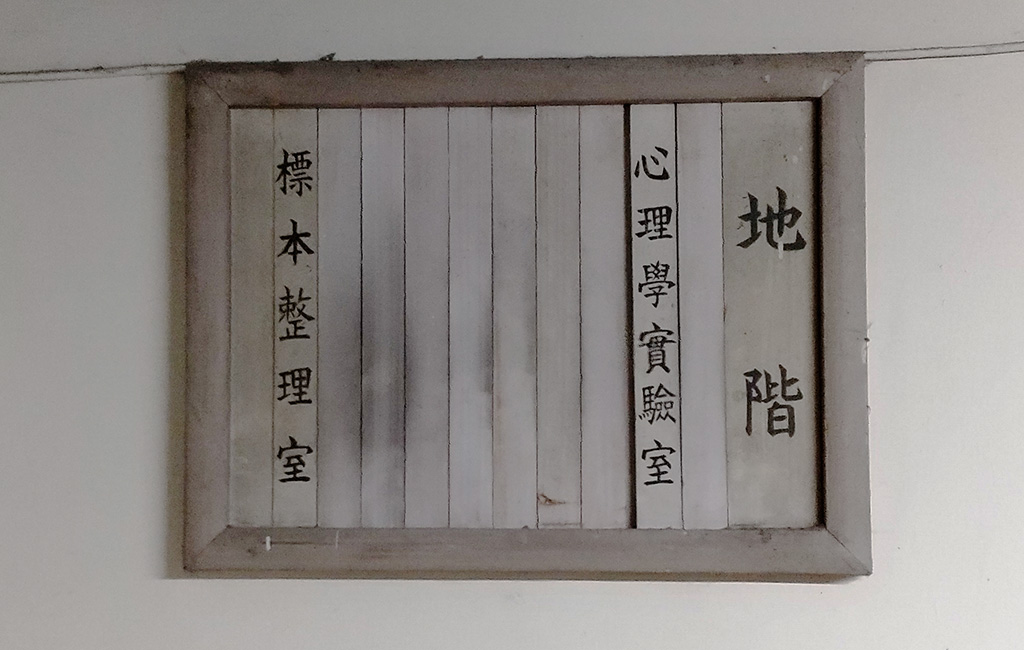 地階
心理學實驗室
標本整理室